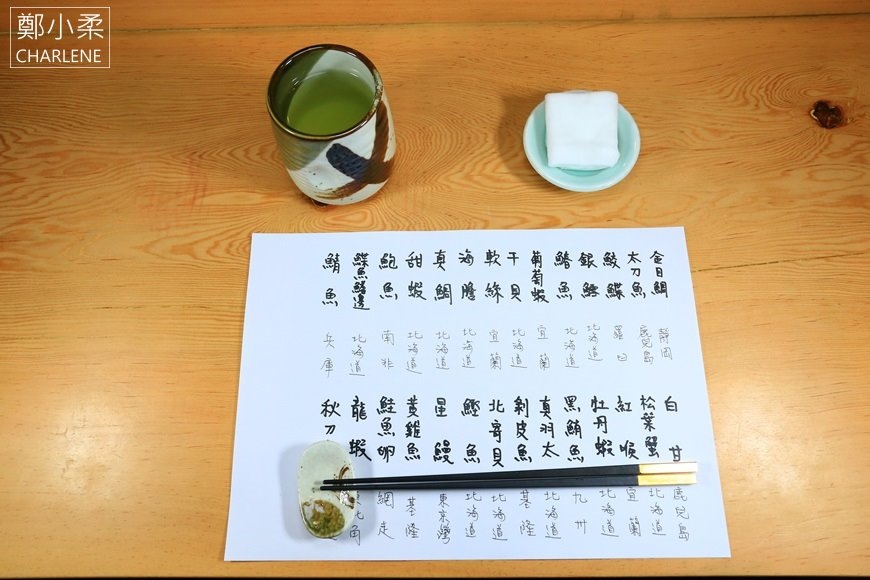 鄭小柔
CHARLENE
金目鯛 静岡
太刀魚 鹿兒島
鮫鰈 羅臼
銀鱈 北海道
鰆魚 北海道
葡萄蝦 宜蘭
干貝 北海道
軟絲 宜蘭
海膽 北海道
真鯛 北海道
甜蝦 北海道
鮑魚 南非
鰈魚鰭邊 北海道
鯖魚 兵庫
白甘 鹿兒島
松葉蟹 北海道
紅喉 宜蘭
牡丹蝦 北海道
黑鮪魚 九州
真羽太 北海道
剝皮魚 基隆
北寄貝 北海道
鰹魚 北海道
星鰻 東京灣
黃雞魚 基隆
鮭魚卵 網走
龍蝦 東北角
秋刀